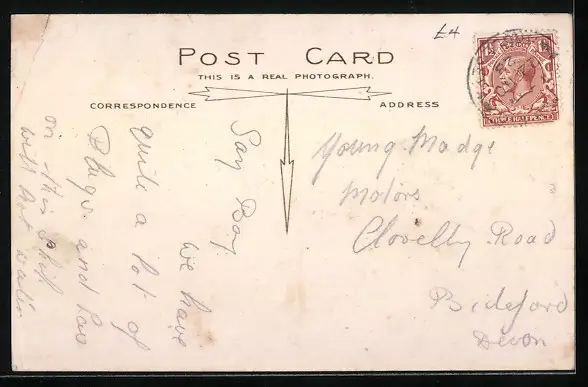 £4
POST CARD
THIS IS A REAL PHOTOGRAPH.
CORRESPONDENCE
ADDRESS
Say Boy
We have
quite a lot of
Bugs and
on this ship
with hot water
Young Madge
Motors
Clovelly Road
Bideford
Devon
THREE HALFPENCE